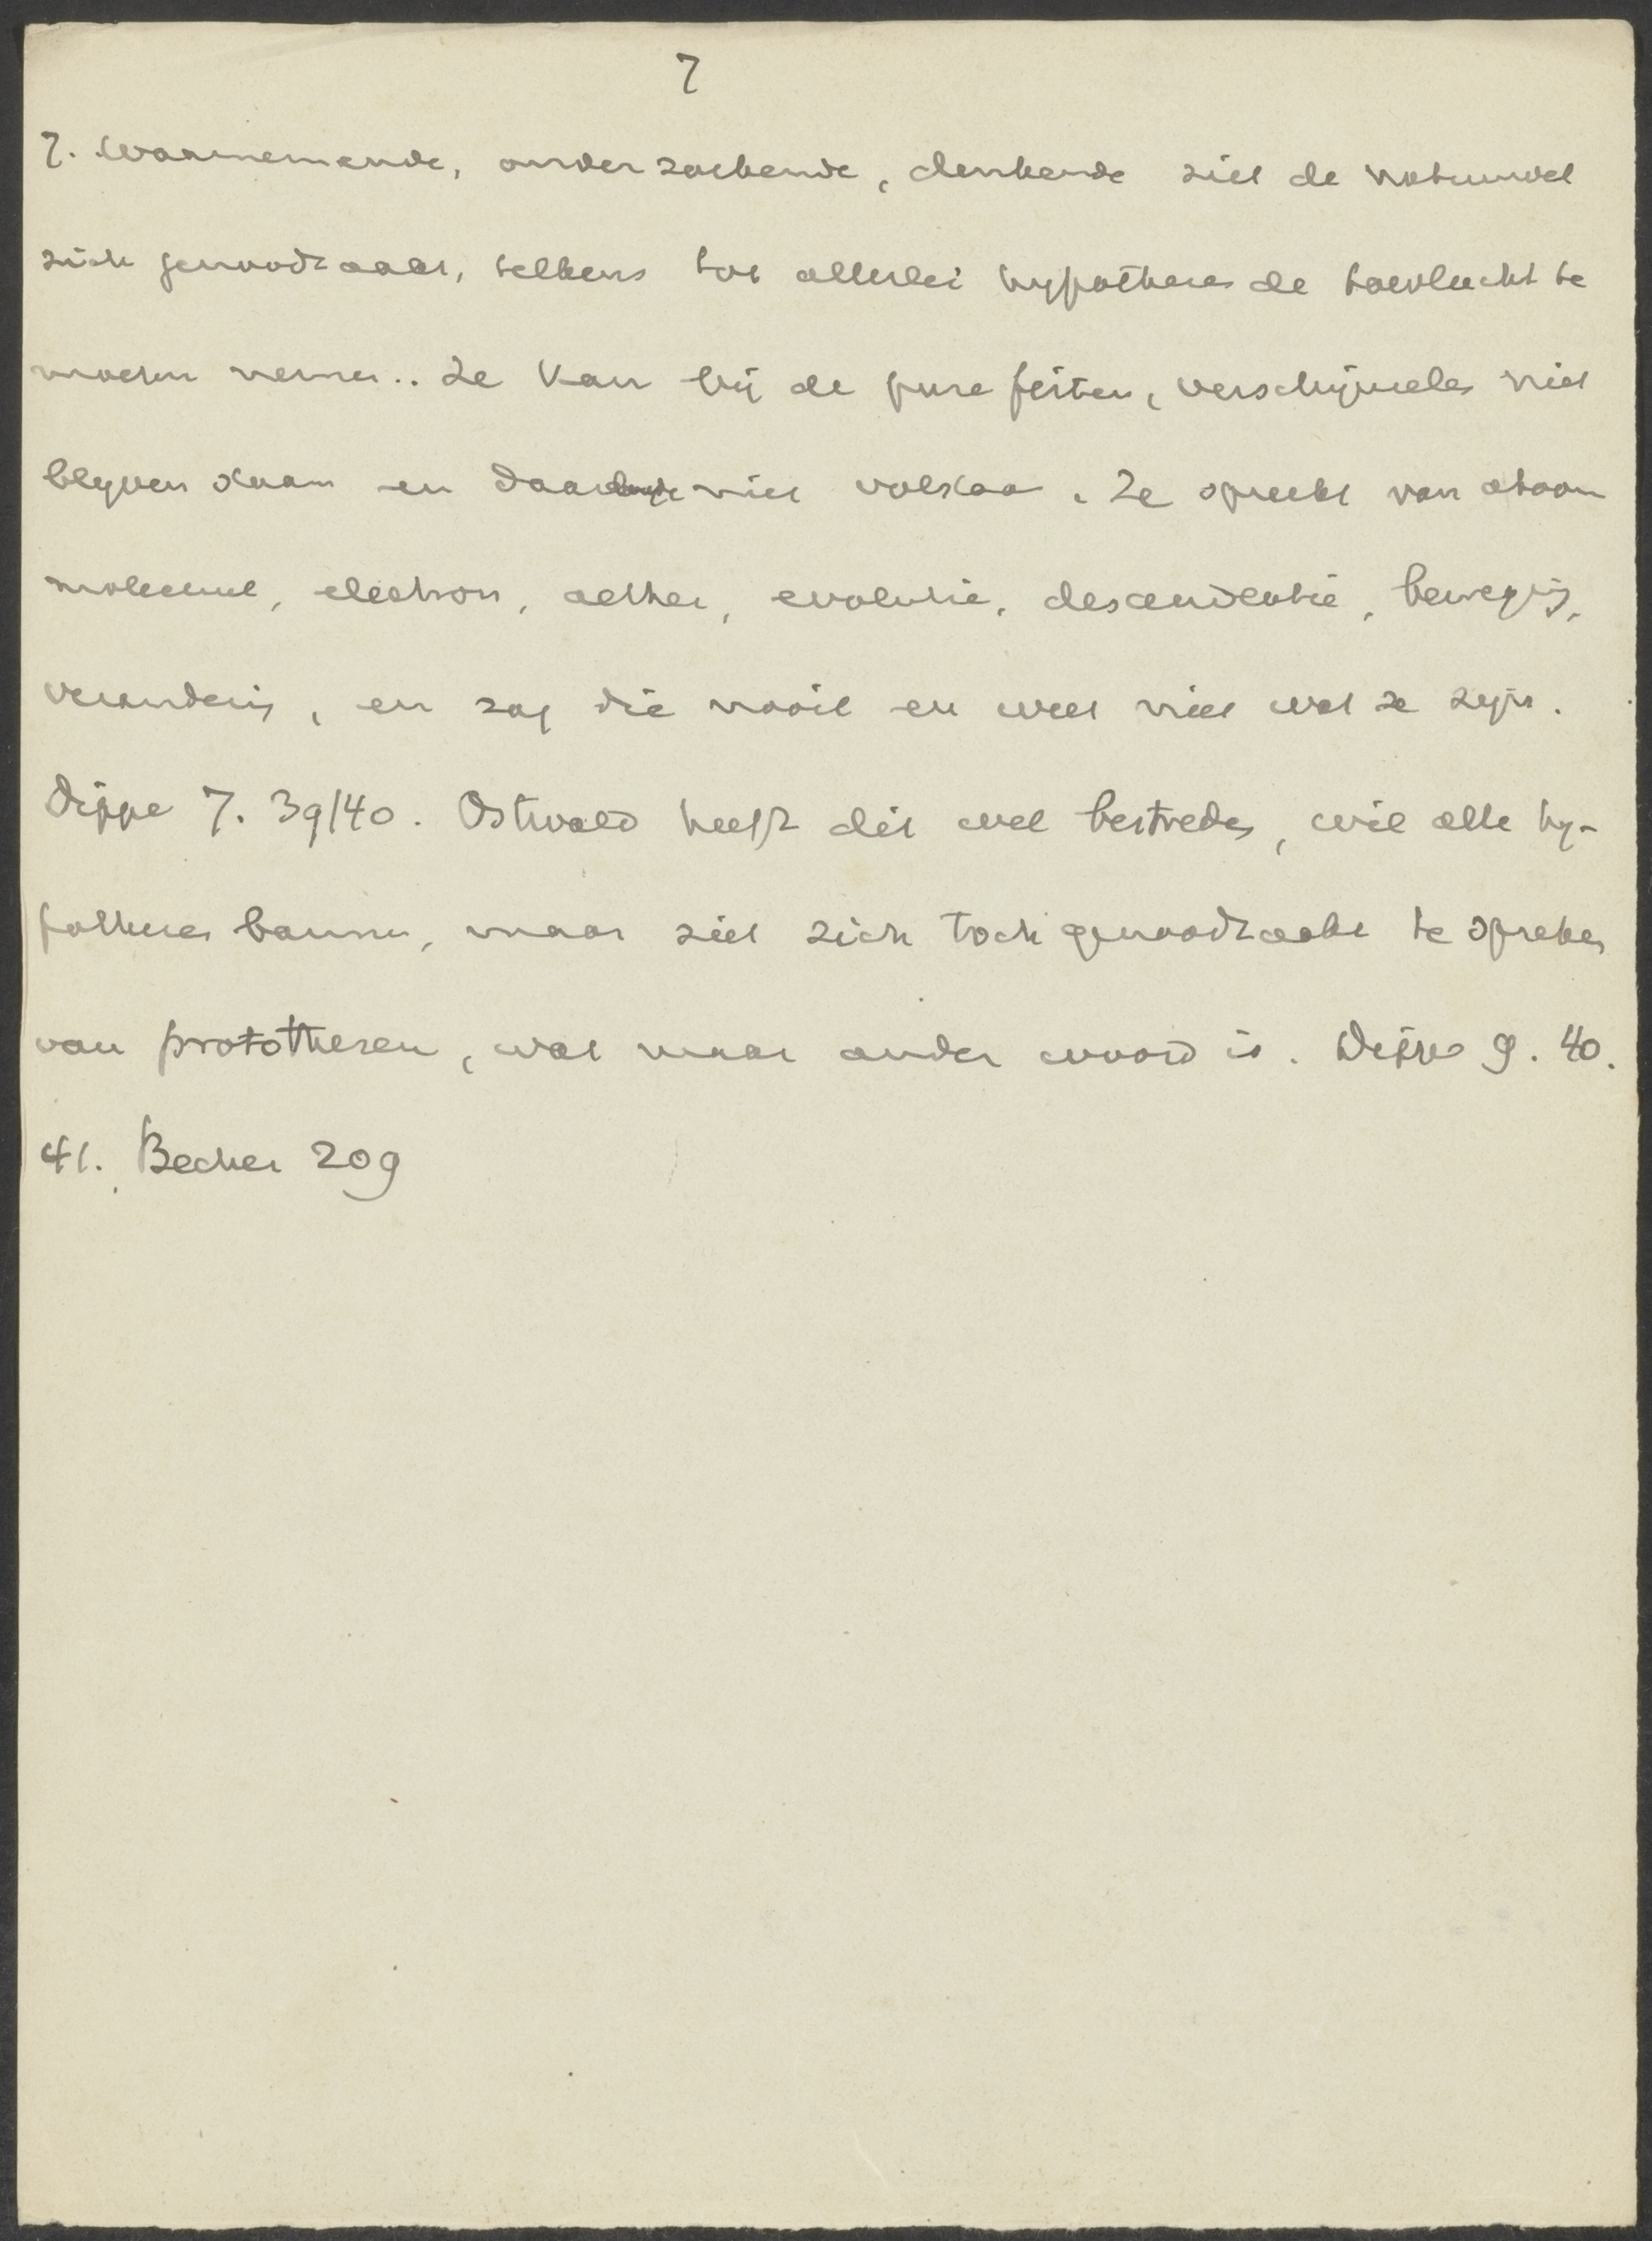 7
7. Waarnemende, onderzoekende, denkende ziet de natuurwet
zich genoodzaakt, telkens tot allerlei hypotheses de toevlucht te
moeten nemen.. Ze kan bij de pure feiten, verschijnselen niet
blijven staan en daarmede niet volstaa. Ze spreekt van atoom
molecuul, electron, aether, evolutie, descendentie, beweging,
verandering, en zag die nooit en weet niet wat ze zijn.
Dippe 7. 39/40. Ostwald heeft dit wel bestreden, wil alle hy-
potheses bannen, maar ziet zich toch genoodzaakt te spreken
van protothesen, wat maar ander woord is. Dippe 9. 40.
41. Becher 209